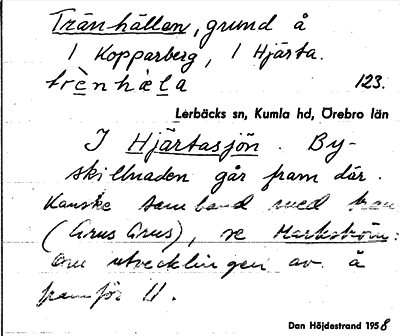 Tränhällan, grund å
1 Kopparberg, 1 Hjärta.
trènhæla 123.
Lerbäcks sn, Kumla hd, Örebro län
I Hjärtasjön. By-
skillnaden går fram där.
Kanske samband med tran
(Grus Grus), se Markström:
Om utvecklingen av å
framför ll.
Dan Höjdestrand 1958